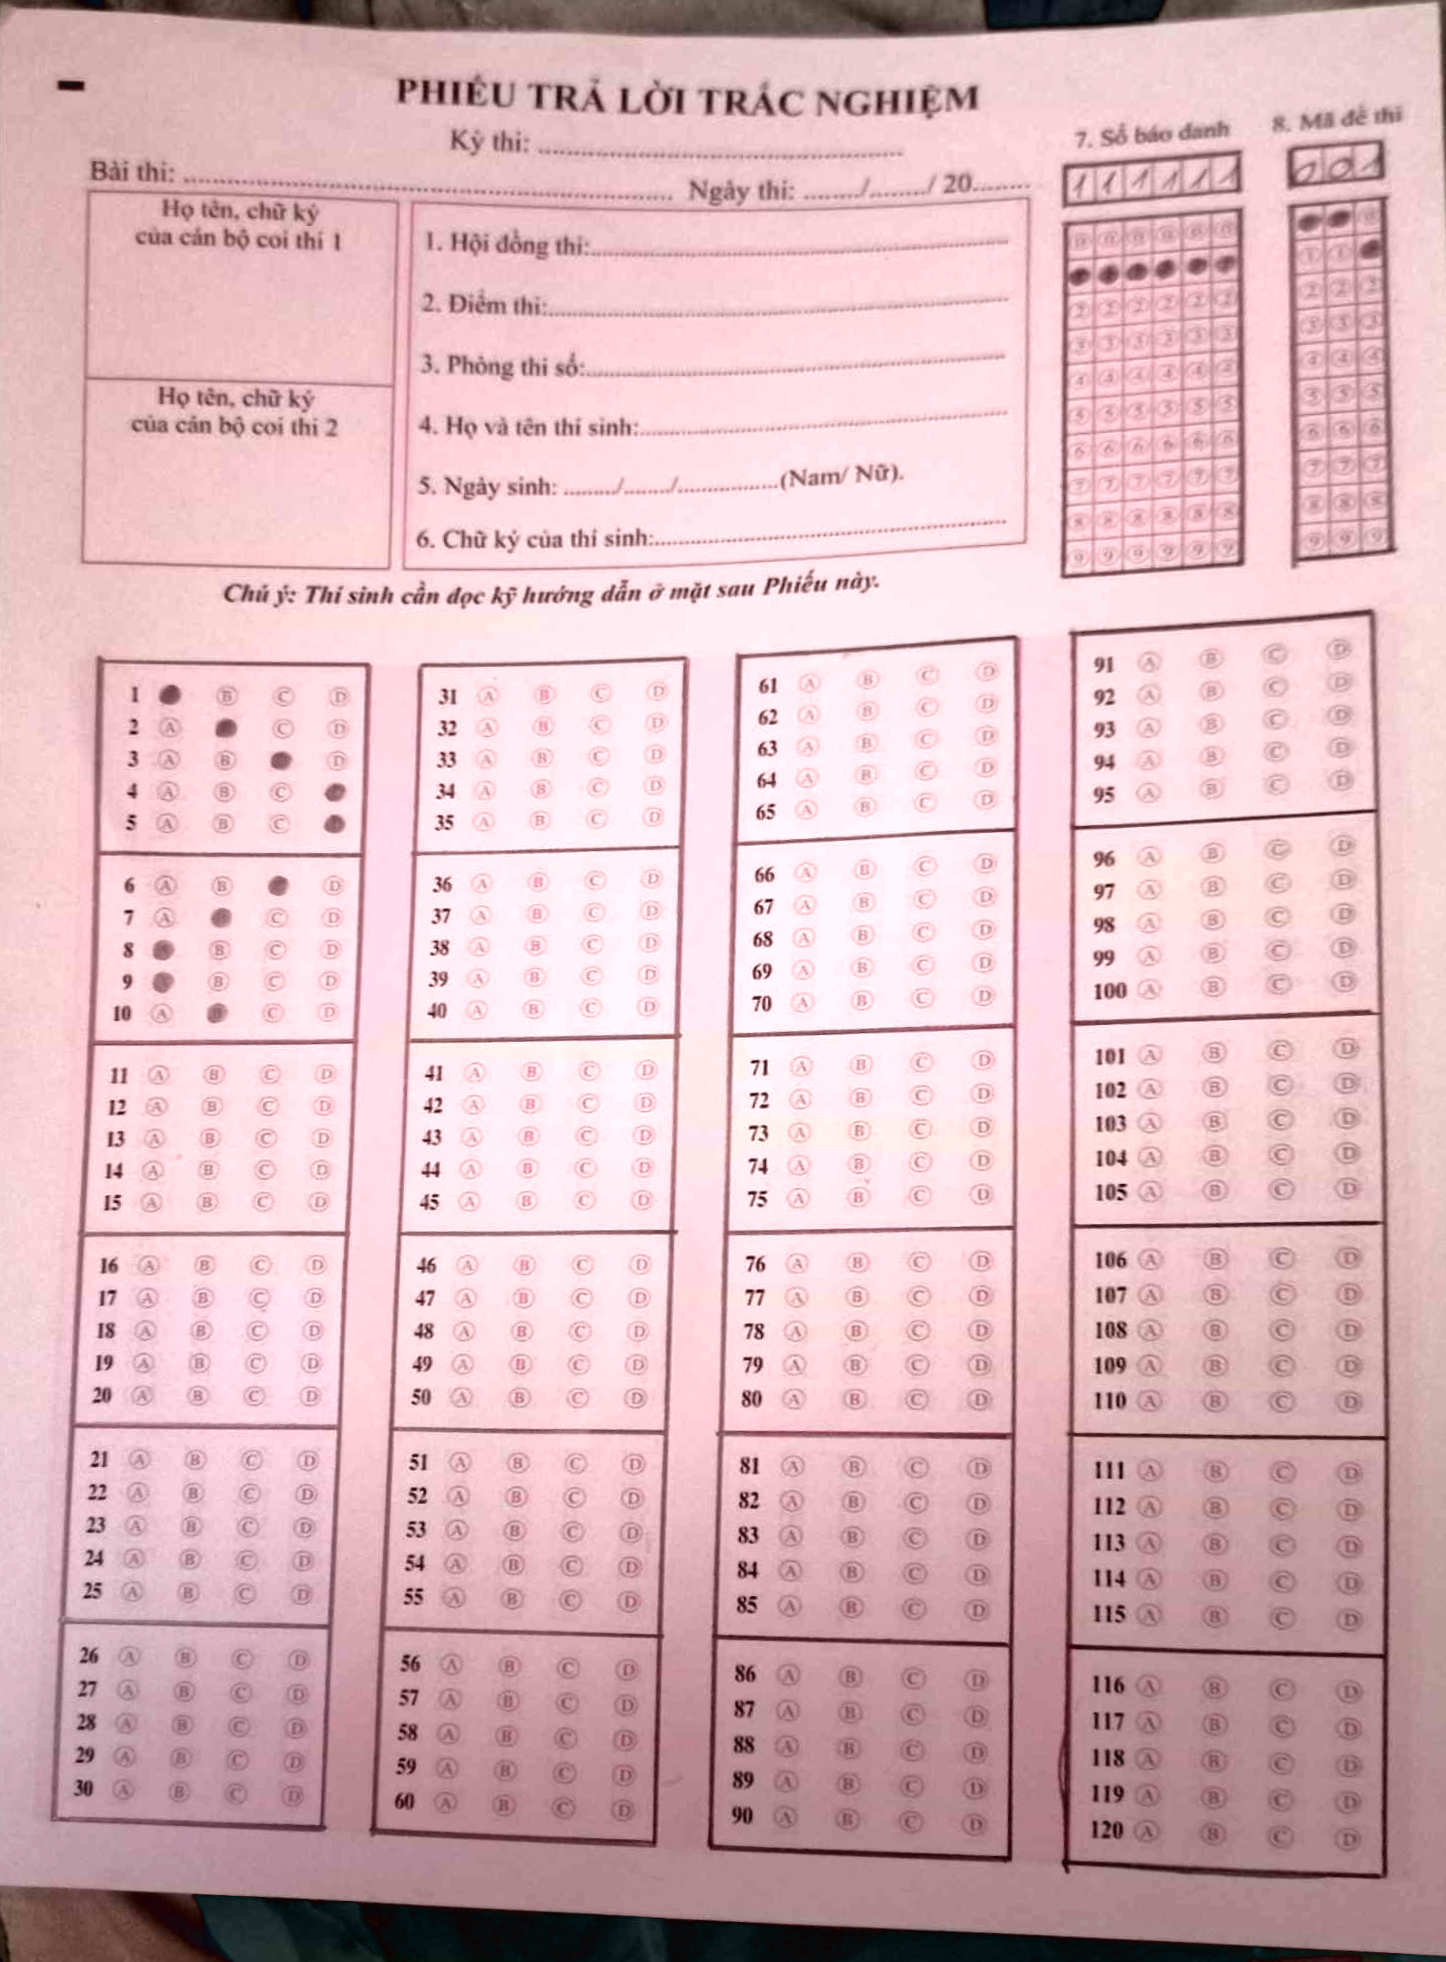 PHIẾU TRẢ LỜI TRẮC NGHIỆM
Kỳ thi: ........................................
Bài thi: ........................................ Ngày thi: ......../......../ 20........
7. Số báo danh
1 1 1 1 1 1
8. Mã đề thi
0 0 1
Họ tên, chữ ký
của cán bộ coi thi 1
Họ tên, chữ ký
của cán bộ coi thi 2
1. Hội đồng thi:........................................
2. Điểm thi:........................................
3. Phòng thi số:........................................
4. Họ và tên thí sinh:........................................
5. Ngày sinh: ......../......../................(Nam/ Nữ).
6. Chữ ký của thí sinh:........................................
0 0 0 0 0 0
2 2 2 2 2 2
3 3 3 3 3 3
4 4 4 4 4 4
5 5 5 5 5 5
6 6 6 6 6 6
7 7 7 7 7 7
8 8 8 8 8 8
9 9 9 9 9 9
0
1 1
2 2 2
3 3 3
4 4 4
5 5 5
6 6 6
7 7 7
8 8 8
9 9 9
Chú ý: Thí sinh cần đọc kỹ hướng dẫn ở mặt sau Phiếu này.
1 B C D
2 A C D
3 A B D
4 A B C
5 A B C
6 A B D
7 A C D
8 B C D
9 B C D
10 A B C D
11 A B C D
12 A B C D
13 A B C D
14 A B C D
15 A B C D
16 A B C D
17 A B C D
18 A B C D
19 A B C D
20 A B C D
21 A B C D
22 A B C D
23 A B C D
24 A B C D
25 A B C D
26 A B C D
27 A B C D
28 A B C D
29 A B C D
30 A B C D
31 A B C D
32 A B C D
33 A B C D
34 A B C D
35 A B C D
36 A B C D
37 A B C D
38 A B C D
39 A B C D
40 A B C D
41 A B C D
42 A B C D
43 A B C D
44 A B C D
45 A B C D
46 A B C D
47 A B C D
48 A B C D
49 A B C D
50 A B C D
51 A B C D
52 A B C D
53 A B C D
54 A B C D
55 A B C D
56 A B C D
57 A B C D
58 A B C D
59 A B C D
60 A B C D
61 A B C D
62 A B C D
63 A B C D
64 A B C D
65 A B C D
66 A B C D
67 A B C D
68 A B C D
69 A B C D
70 A B C D
71 A B C D
72 A B C D
73 A B C D
74 A B C D
75 A B C D
76 A B C D
77 A B C D
78 A B C D
79 A B C D
80 A B C D
81 A B C D
82 A B C D
83 A B C D
84 A B C D
85 A B C D
86 A B C D
87 A B C D
88 A B C D
89 A B C D
90 A B C D
91 A B C D
92 A B C D
93 A B C D
94 A B C D
95 A B C D
96 A B C D
97 A B C D
98 A B C D
99 A B C D
100 A B C D
101 A B C D
102 A B C D
103 A B C D
104 A B C D
105 A B C D
106 A B C D
107 A B C D
108 A B C D
109 A B C D
110 A B C D
111 A B C D
112 A B C D
113 A B C D
114 A B C D
115 A B C D
116 A B C D
117 A B C D
118 A B C D
119 A B C D
120 A B C D